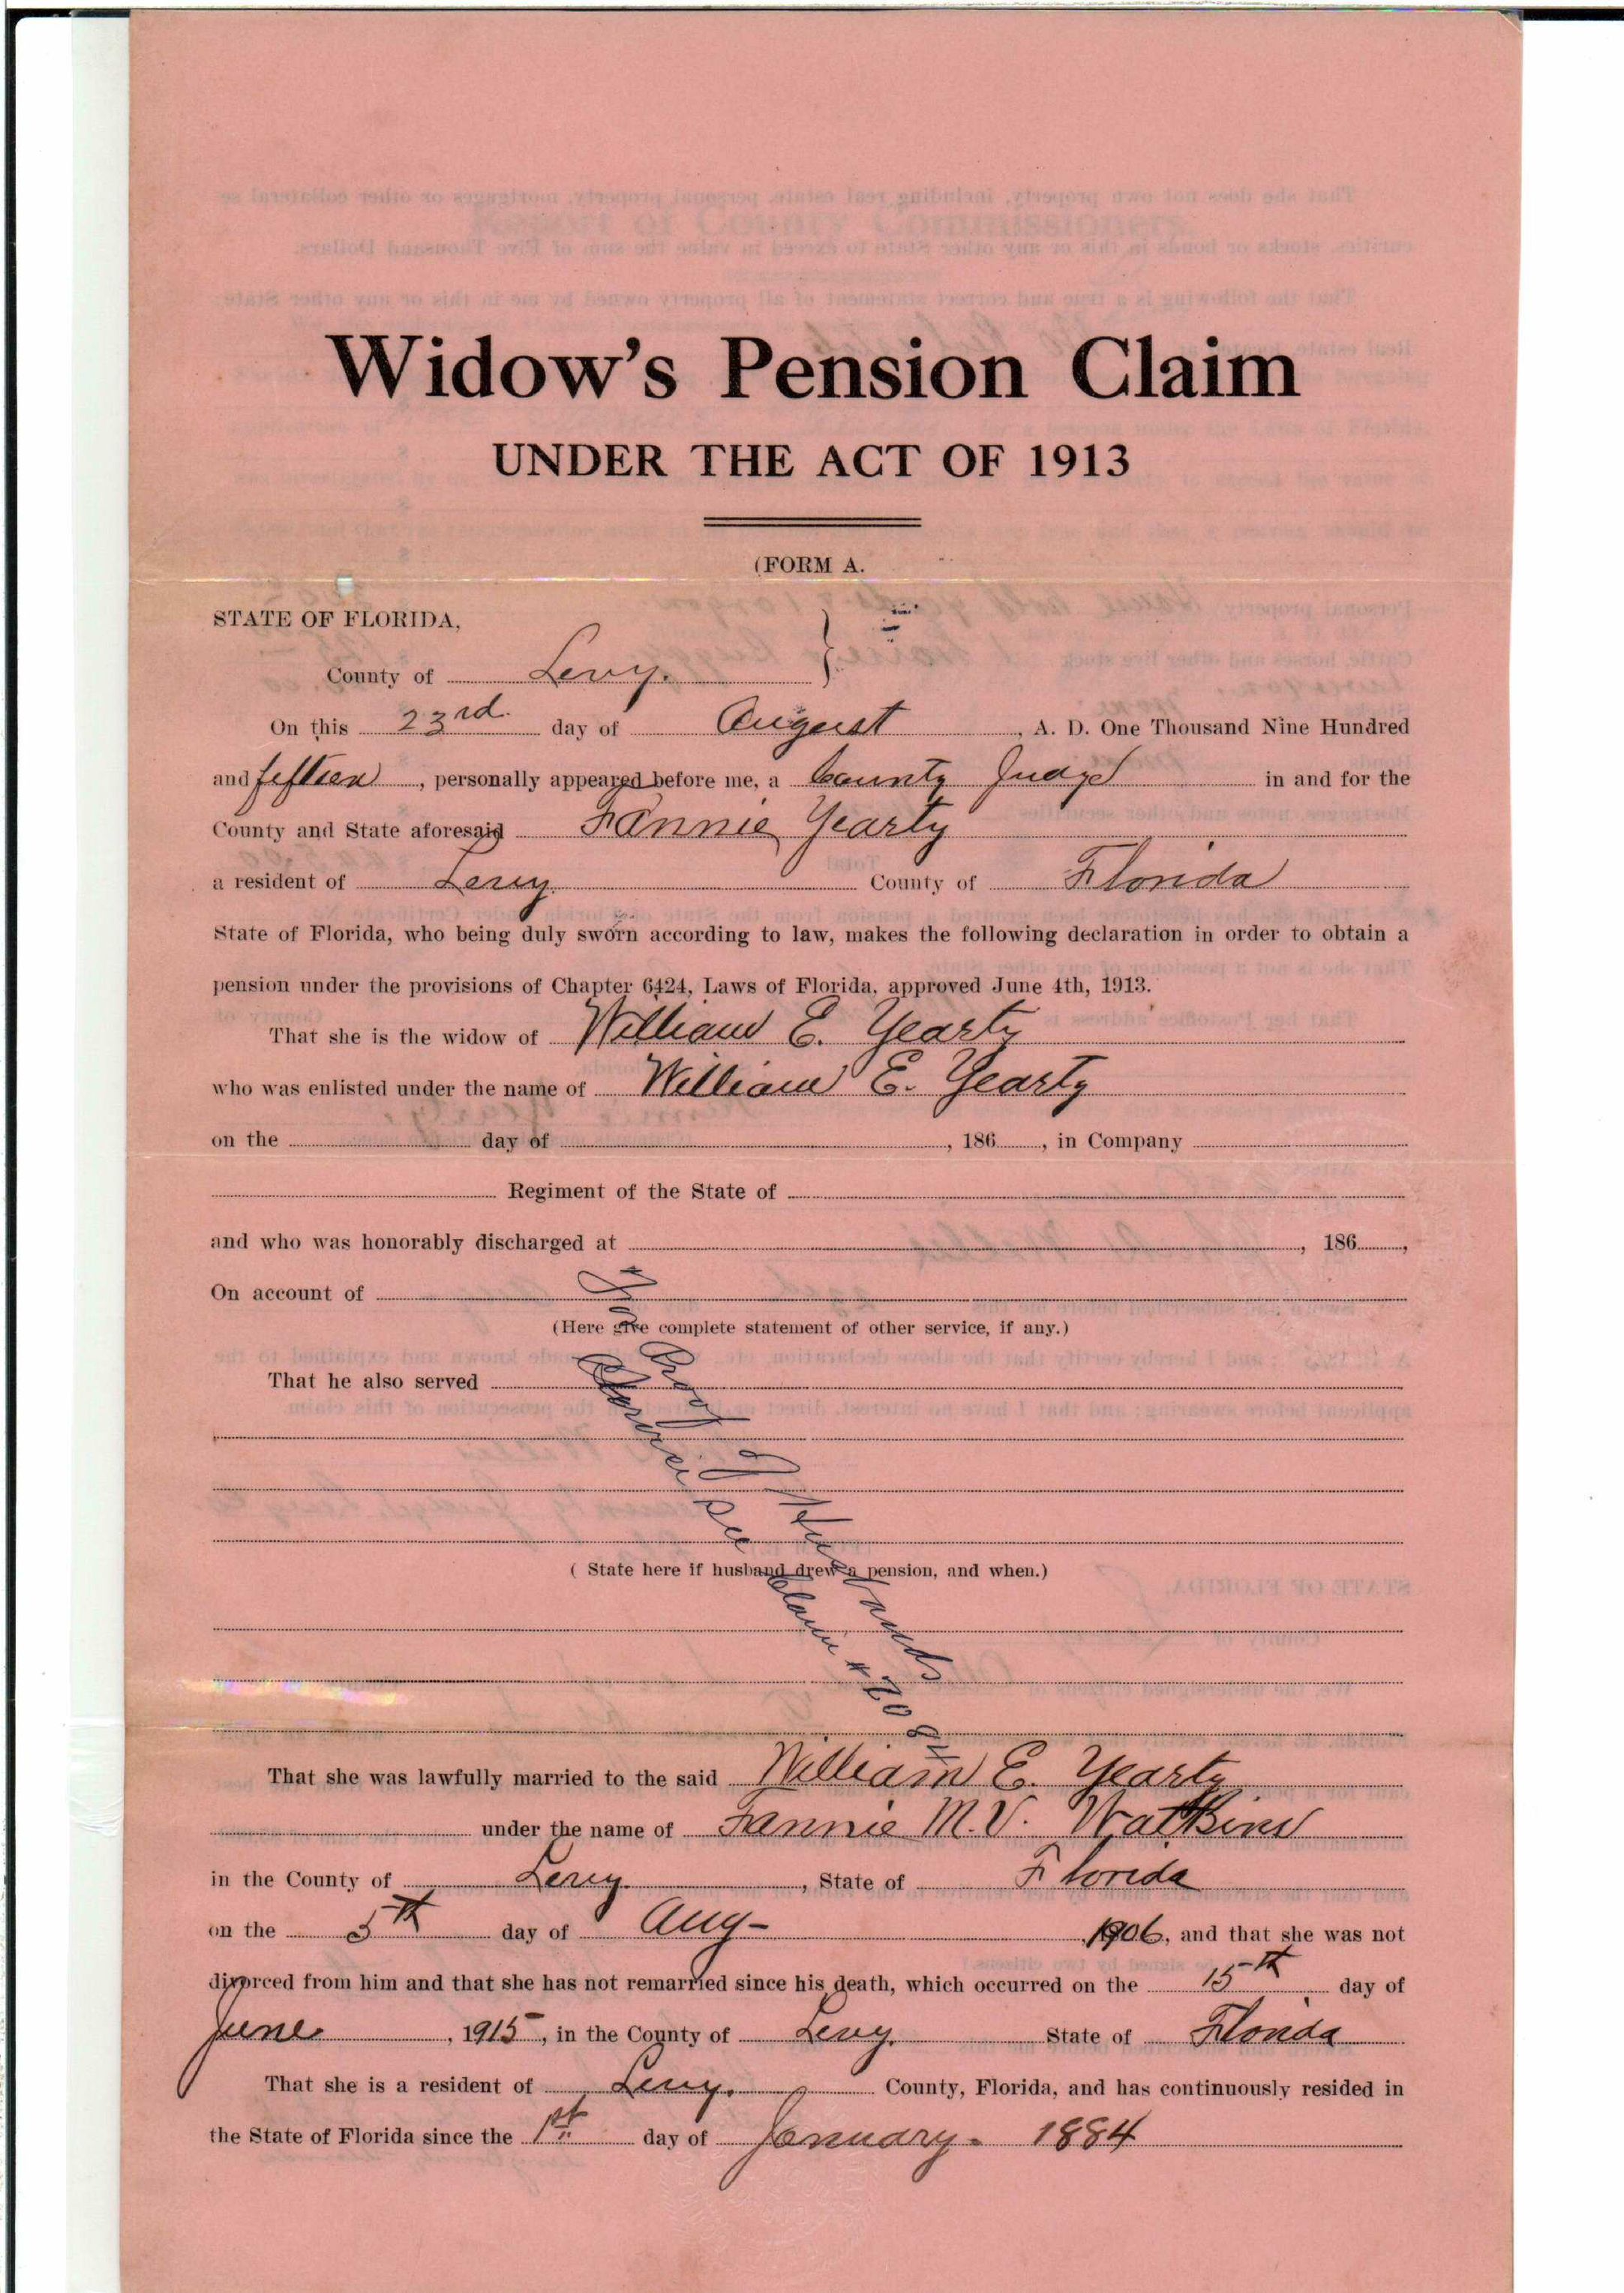 Widow's Pension Claim
UNDER THE ACT OF 1913
(FORM A.
STATE OF FLORIDA,
County of Levy.
On this 23rd. day of August, A. D. One Thousand Nine Hundred
and fifteen, personally appeared before me, a County Judge in and for the
County and State aforesaid Fannie Yearty
a resident of Levy. County of Florida
State of Florida, who being duly sworn according to law, makes the following declaration in order to obtain a
pension under the provisions of Chapter 6424, Laws of Florida, approved June 4th, 1913.
That she is the widow of William E. Yearty
who was enlisted under the name of William E. Yearty
on the day of , 186 , in Company
Regiment of the State of
and who was honorably discharged at , 186 ,
On account of
(Here give complete statement of other service, if any.)
That he also served
( State here if husband drew a pension, and when.)
For Proof of Husbands
Service see claim # 708
That she was lawfully married to the said William E. Yearty
under the name of Fannie M.V. Watkins
in the County of Levy. , State of Florida
on the 5th day of Aug- , 1906, and that she was not
divorced from him and that she has not remarried since his death, which occurred on the 15th day of
June , 1915, in the County of Levy. State of Florida
That she is a resident of Levy. County, Florida, and has continuously resided in
the State of Florida since the 1st. day of January- 1884